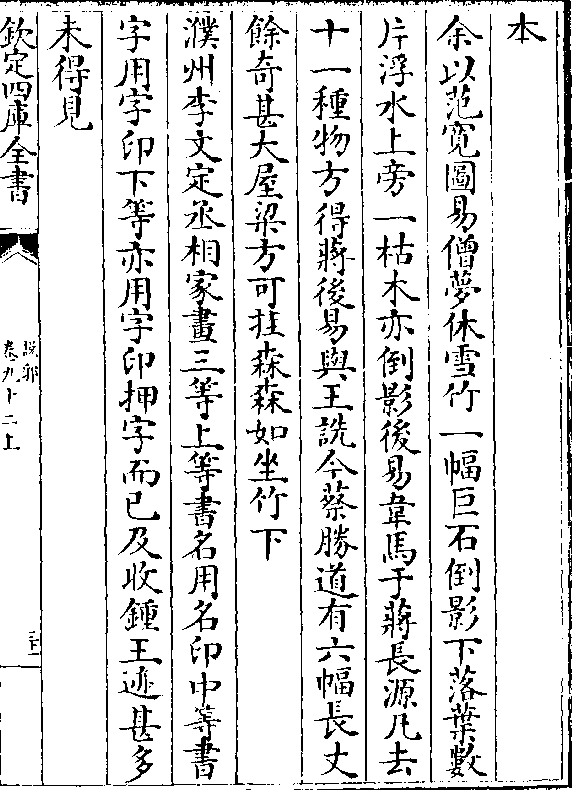 本
余以范寛圖易僧夢休雪竹一幅巨石倒影下落葉數
片浮水上旁一枯木亦倒影後易韋馬于蔣長源凡去
十一種物方得蔣後易與王詵今蔡勝道有六幅長丈
餘奇甚大屋梁方可挂森森如坐竹下
濮州李文定丞相家畫三等上等書名用名印中等書
字用字印下等亦用字印押字而已及收鍾王迹甚多
未得見
欽定四庫全書
說郛
卷九十二上